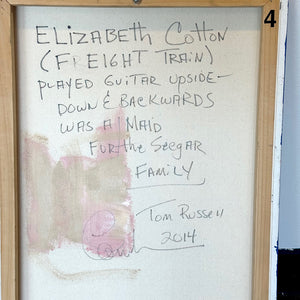 4
ELIZABETH COTTON
(FREIGHT TRAIN)
PLAYED GUITAR UPSIDE-
DOWN & BACKWARDS
WAS A MAID
FUR THE SEEGAR
FAMILY
TOM RUSSELL
2014